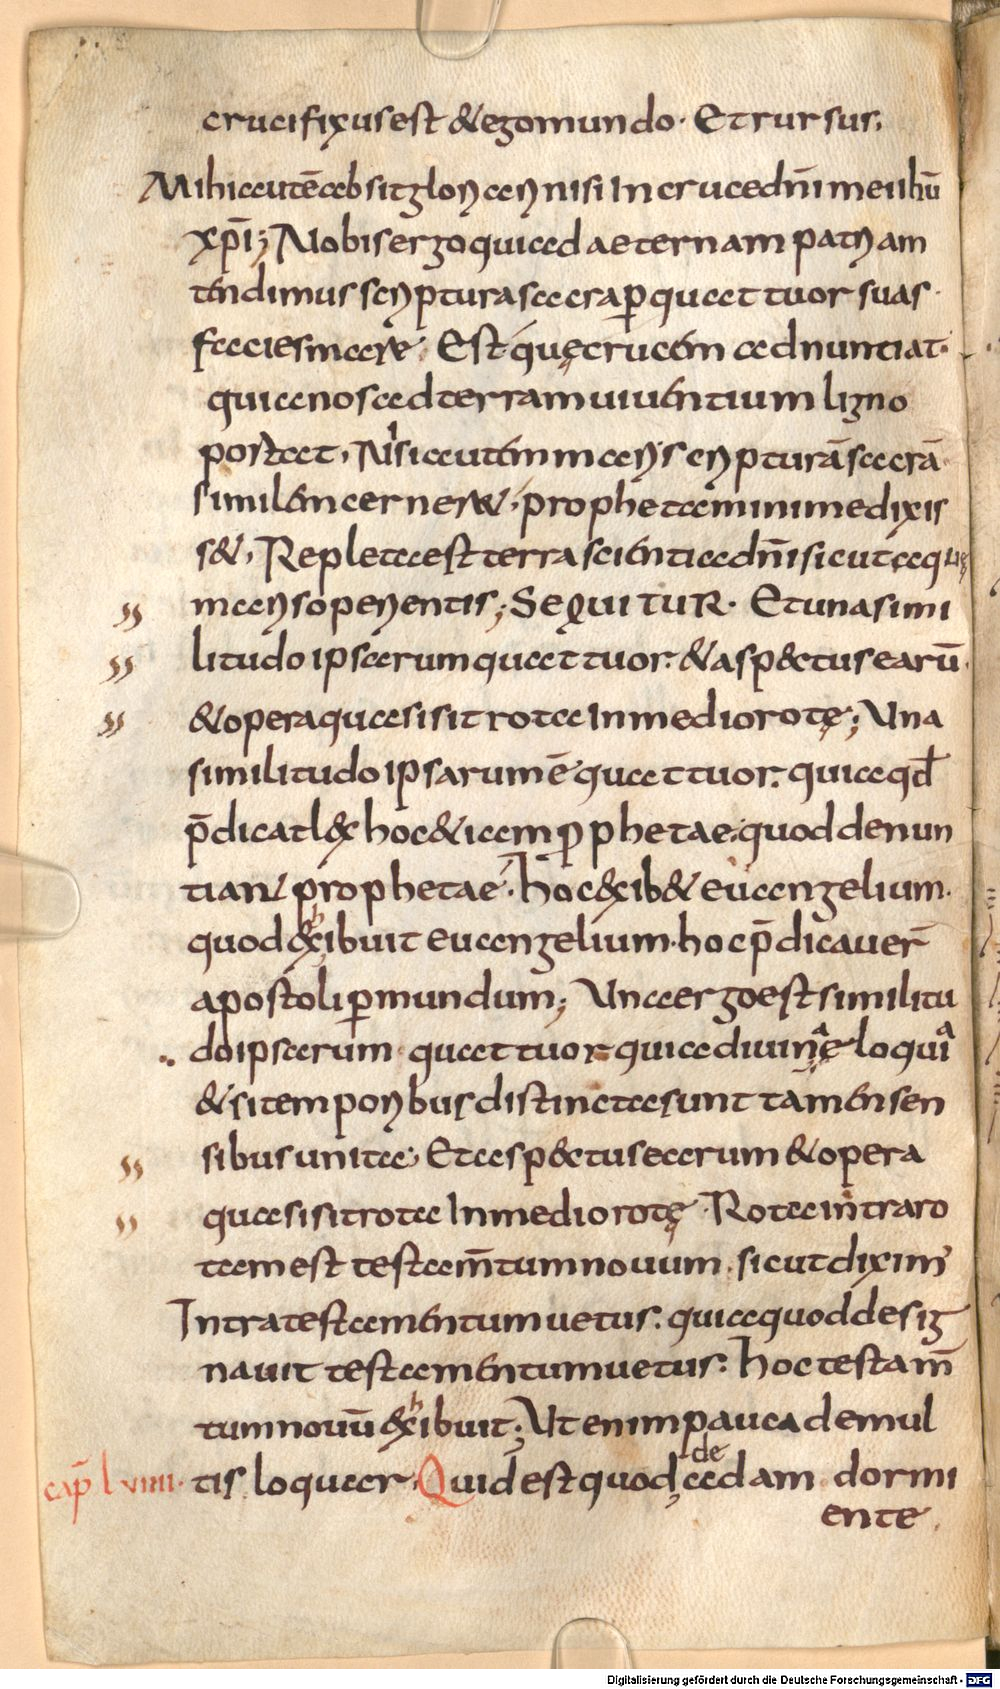 crucifixus est & ego mundo · Et rursus;
Mihi autē absit gloriari nisi In cruce dn̄i mei ihū
xp̄i; Nobis ergo qui ad aeternam patriam
tendimus scriptura sacra ꝑ quattuor suas
facies mare · Est quę crucem adnuntiat·
quia nos ad terram uiuentium ligno
portat, Nisi autem mari scripturā sacrā
similem cerneret, propheta minime dixis
s&, Repleta est terra scientia dn̄i sicut aquę
maris operientis; SEQUITUR · Et una simi
litudo ipsarum quattuor· & asp&tus earū
& opera quasi sit rota In medio rotę; Una
similitudo ipsarum ē quattuor· quia qd̄
p̄dicat l&x hoc & iam ꝓphetae· quod denun
tiant prophetae · hoc &xib& euangelium·
quod &xhibuit euangelium· hoc p̄dicaver̄
apostoli ꝑ mundum; Una ergo est similitu
do ipsarum quattuor quia diuina eloquia
& si temporibus distincta sunt tamen sen
sibus unita; Et asp&tus earum & opera
quasi sit rota In medio rotę · Rota intra ro
tam est testam̄tum nouum · sicut diximꝰ
Intra testamentum uetus· quia quod desig
nauit testamentum uetus· hoc testam̄
tum nouū &xhibuit; Ut enim pauca de mul
cap̄ l viiii · tis loquar · Quid est quod de adam dormi
ente ·